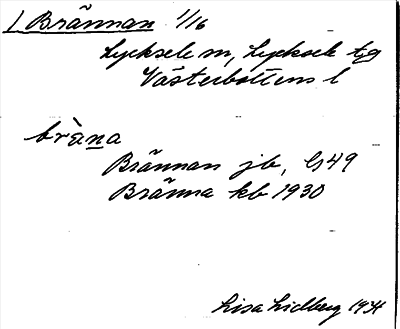 1 Brännan 1/16
Lycksele sn, Lycksele tg
Västerbottens l
brä̀na
Brännan jb, G49
Bränna kb 1930
Lisa Lidberg 1934